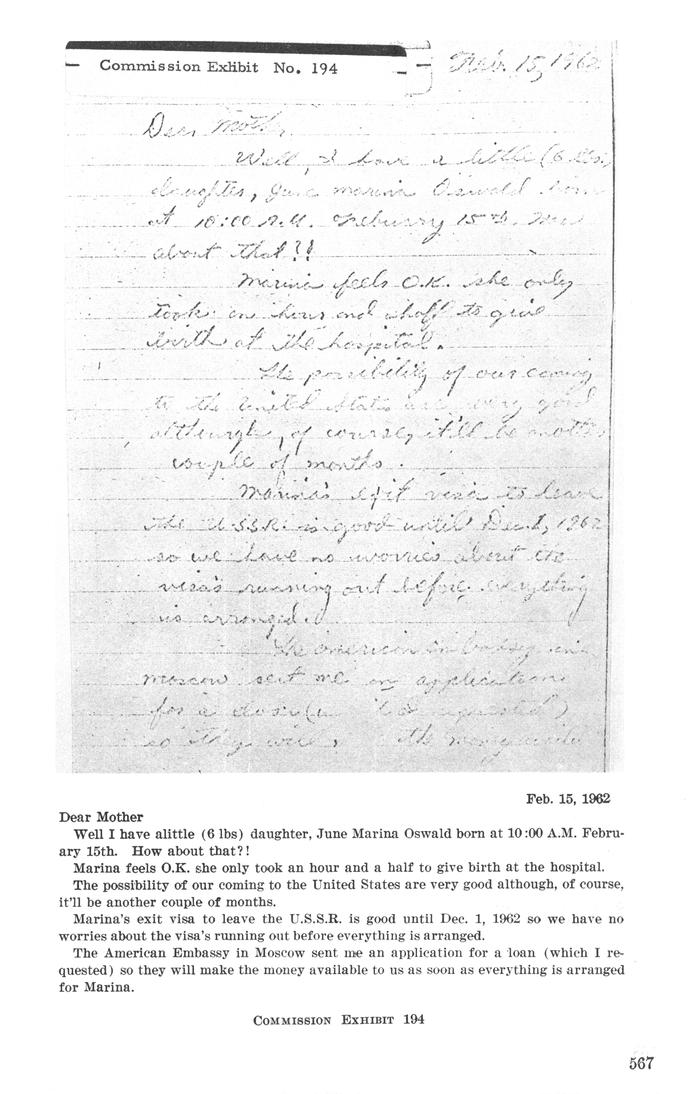 Commission Exhibit No. 194
Feb. 15, 1962
Dear Mother
Well, I have a little (6 lbs)
daughter, June Marina Oswald born
at 10:00 A.M. Feburry 15th. How
about that?!
Marina feels O.K. she only
took an hour and a half to give
birth at the hospital.
The possibility of our coming
to the United States are very good
although, of course, it'll be another
couple of months.
Marina's exit visa to leave
the U.S.S.R. is good until Dec. 1, 1962
so we have no worries about the
visa's running out before everything
is arranged.
The american in
moscow sent me an application
for a requested)
so they will the money
Feb. 15, 1962
Dear Mother
Well I have alittle (6 lbs) daughter, June Marina Oswald born at 10:00 A.M. Febru-
ary 15th. How about that?!
Marina feels O.K. she only took an hour and a half to give birth at the hospital.
The possibility of our coming to the United States are very good although, of course,
it'll be another couple of months.
Marina's exit visa to leave the U.S.S.R. is good until Dec. 1, 1962 so we have no
worries about the visa's running out before everything is arranged.
The American Embassy in Moscow sent me an application for a loan (which I re-
quested) so they will make the money available to us as soon as everything is arranged
for Marina.
COMMISSION EXHIBIT 194
567